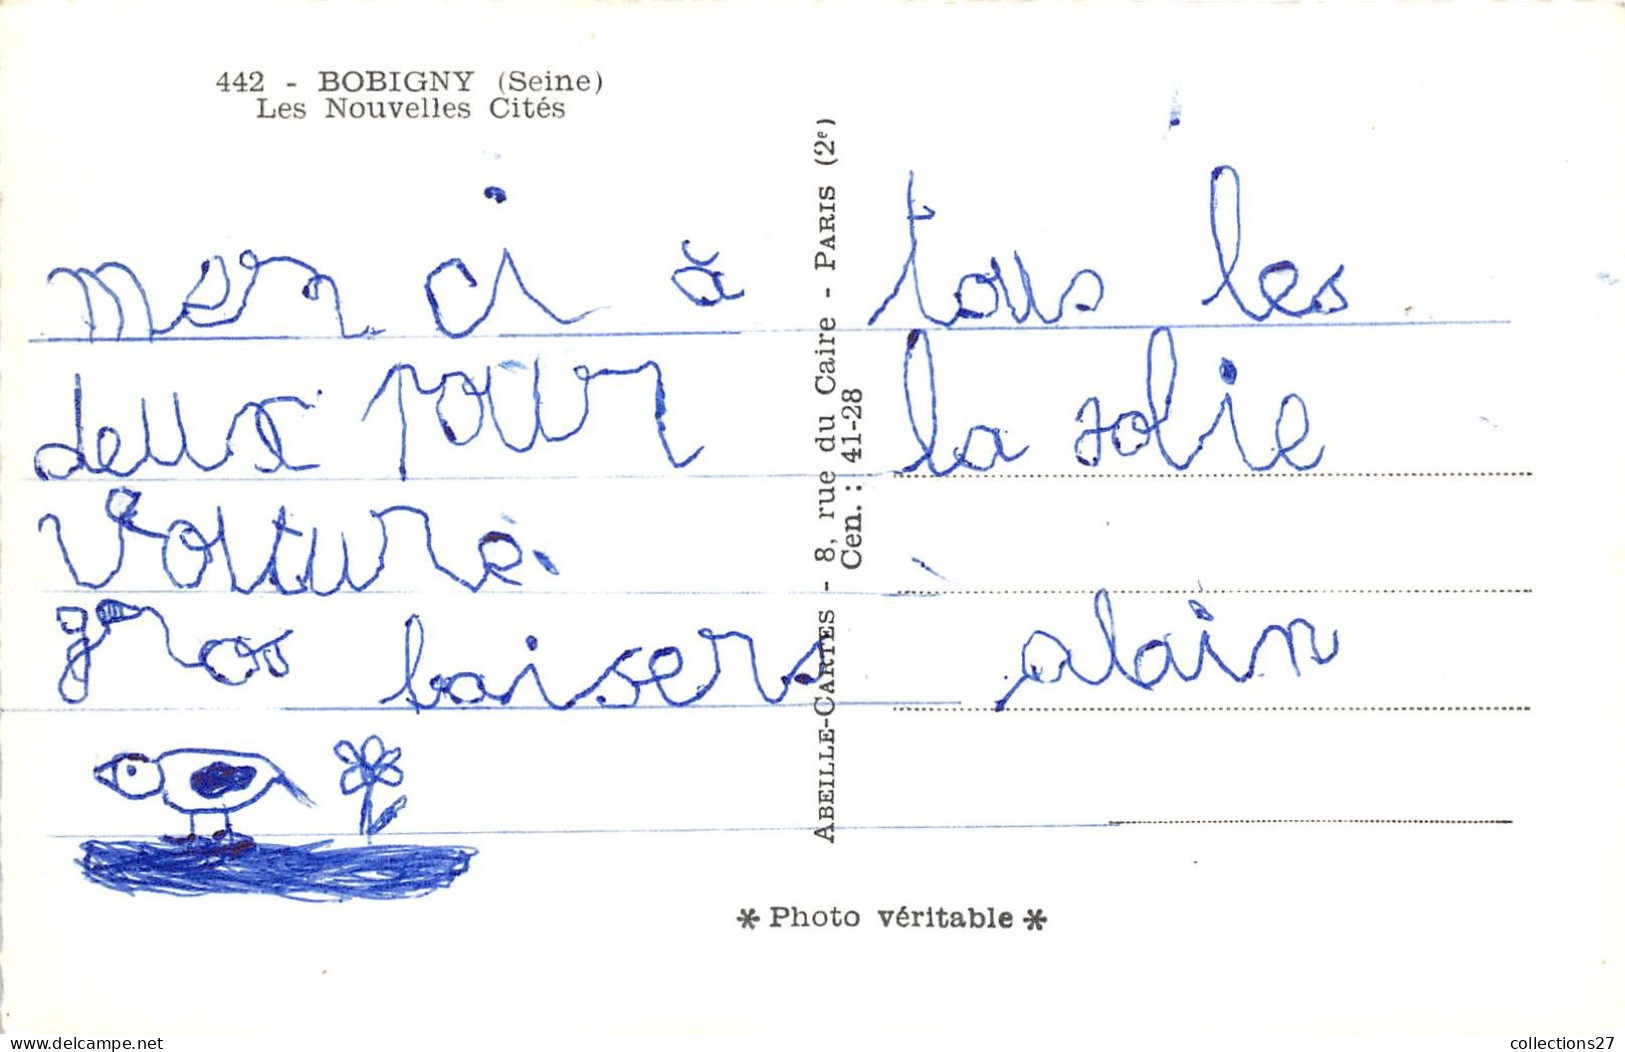 442 - BOBIGNY (Seine)
Les Nouvelles Cités
merci à tous les
deux pour la jolie
voiture.
gros baisers alain
ABEILLE-CARTES - 8, rue du Caire - PARIS (2e)
Cen. : 41-28
* Photo véritable *
delcampe.net
collections27